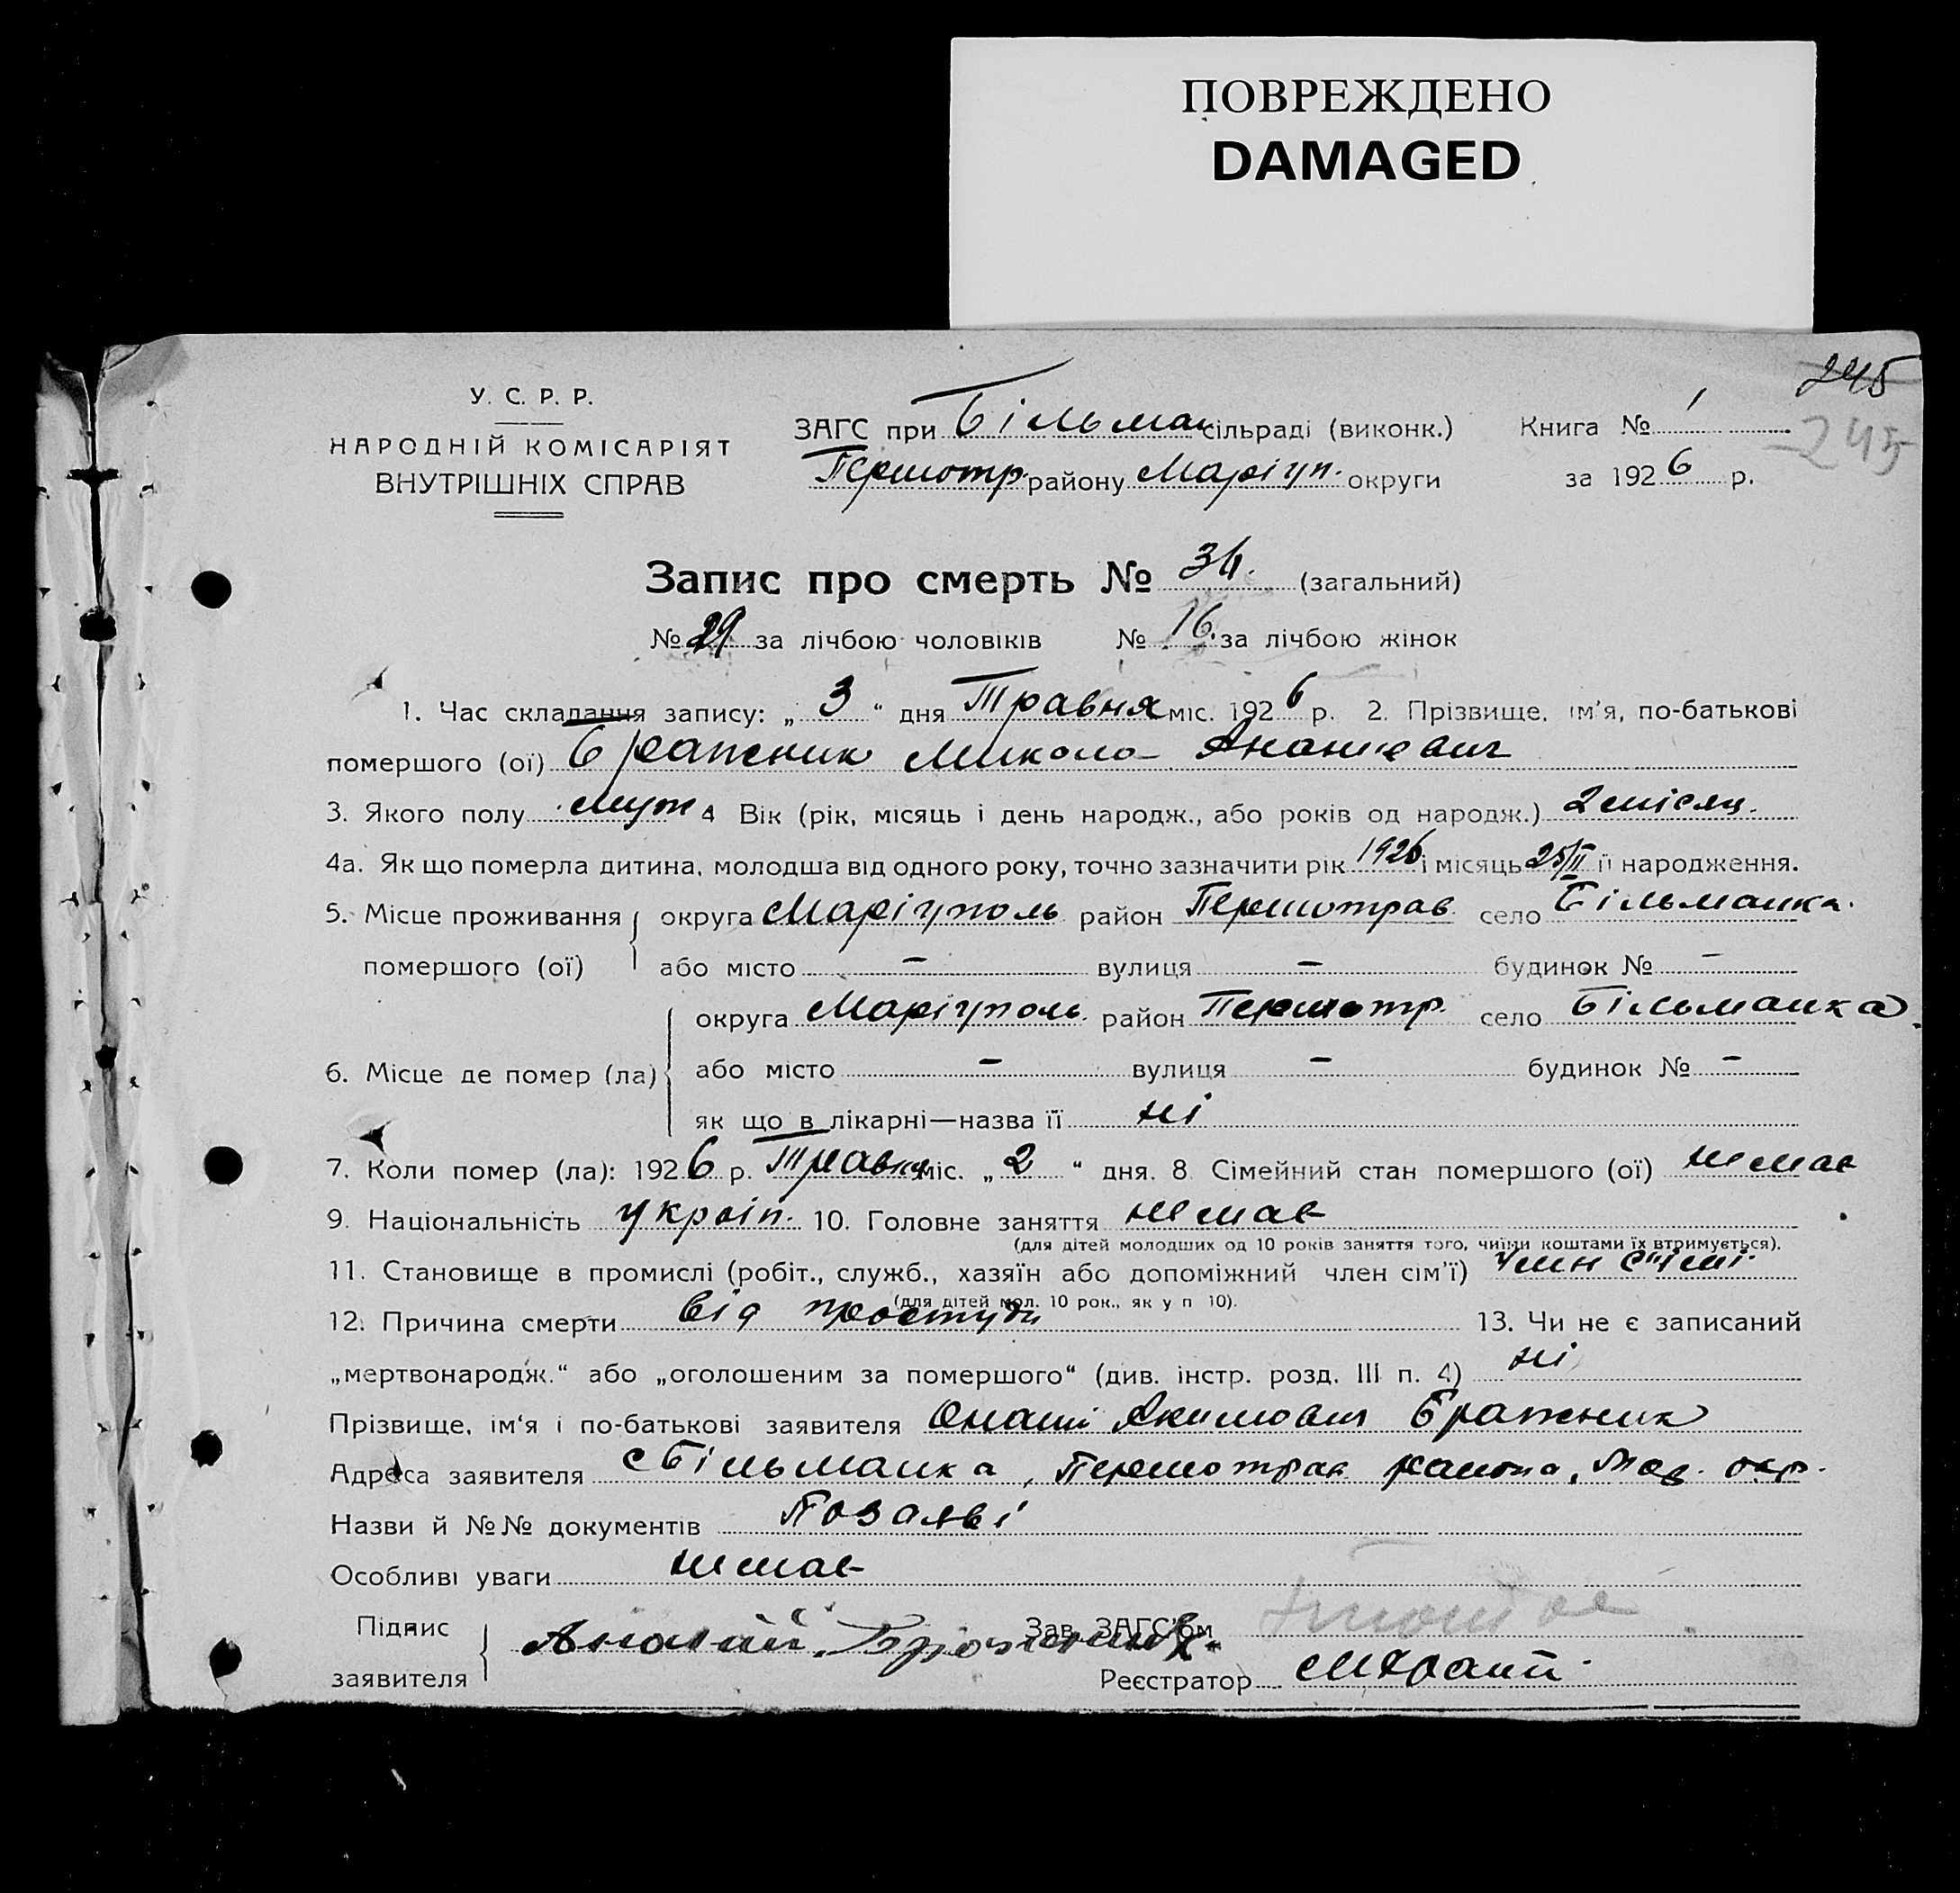 ПОВРЕЖДЕНО
DAMAGED
245
245
У. С. Р. Р.
НАРОДНІЙ КОМІСАРІЯТ
ВНУТРІШНІХ СПРАВ
ЗАГС при Більман сільраді (виконк.) Книга № 1
Першотр. району Маріуп. округи за 1926 р.
Запис про смерть № 34. (загальний)
№ 29 за лічбою чоловіків № 16. за лічбою жінок
1. Час складання запису: „ 3 “ дня Травня міс. 1926 р. 2. Прізвище, ім'я, по-батькові
помершого (ої) Бражник Микола Ананіевич
3. Якого полу муж 4 Вік (рік, місяць і день народж., або років од народж.) 2 місяц.
4а. Як що померла дитина, молодша від одного року, точно зазначити рік 1926 і місяць 25/II її народження.
5. Місце проживання округа Маріуполь район Першотрав. село Більманка.
помершого (ої) або місто – вулиця – будинок № –
округа Маріуполь. район Першотр. село Більманка.
6. Місце де помер (ла) або місто – вулиця – будинок № –
як що в лікарні—назва її ні
7. Коли помер (ла): 1926 р. Травня міс. „ 2 “ дня. 8. Сімейний стан помершого (ої) немає
9. Національність україн. 10. Головне заняття немає
(для дітей молодших од 10 років заняття того, чиїми коштами їх втримується).
11. Становище в промислі (робіт., служб., хазяїн або допоміжний член сім'ї) член с'імі
(для дітей мол. 10 рок., як у п 10).
12. Причина смерти від простуди 13. Чи не є записаний
„мертвонародж.“ або „оголошеним за помершого“ (див. інстр. розд. III п. 4) ні
Прізвище, ім'я і по-батькові заявителя Онаній Якимович Бражник
Адреса заявителя с Більманка, Першотрав. района, Мар. окр.
Назви й №№ документів По заяві
Особливі уваги немає
Підпис Ананій Бражник. Зав. ЗАГС'ом
заявителя Реєстратор